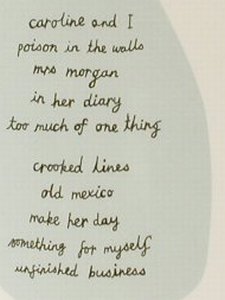 caroline and I
poison in the walls
mrs morgan
in her diary
too much of one thing
crooked lines
old mexico
make her day
something for myself
unfinished business